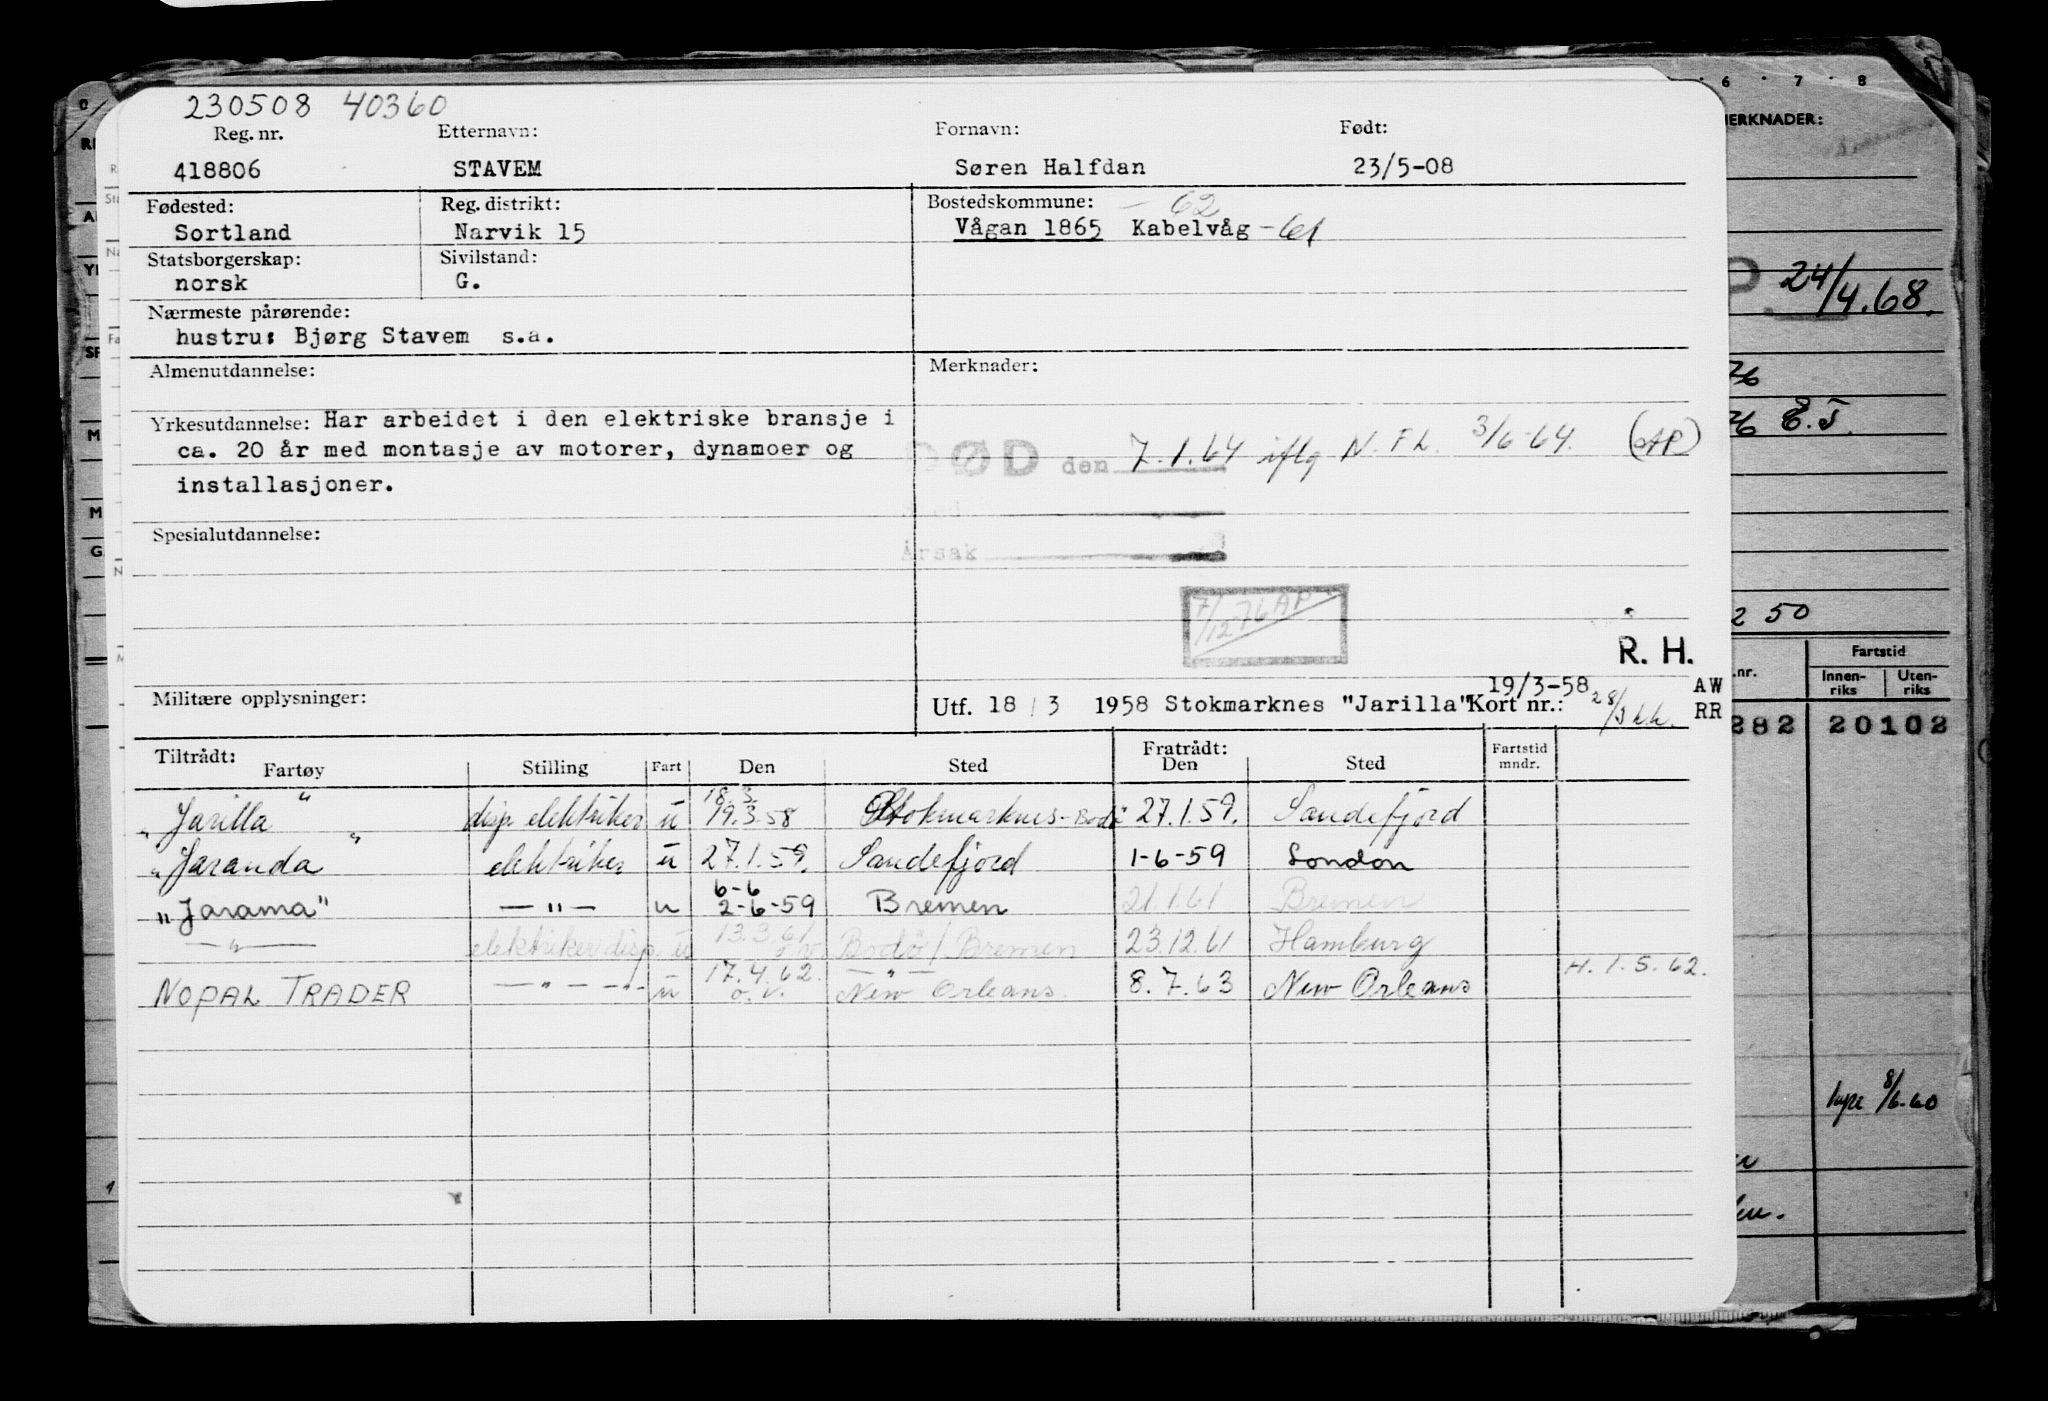 230508 40360
Reg. nr. Etternavn: Fornavn: Født:
418806 STAVEM Søren Halfdan 23/5-08
Fødested: Reg. distrikt: Bostedskommune: - 62
Sortland Narvik 15 Vågan 1865 Kabelvåg - 61
Statsborgerskap: Sivilstand:
norsk G.
Nærmeste pårørende:
hustru: Bjørg Stavem s.a.
Almenutdannelse: Merknader:
Yrkesutdannelse: Har arbeidet i den elektriske bransje i
ca. 20 år med montasje av motorer, dynamoer og
installasjoner.
DØD den 7.1.64 iflg N.F.L. 3/6-64. (AP)
Sted
Årsak
Spesialutdannelse:
7/12-76 AP
R. H.
Militære opplysninger:
Utf. 18/3 1958 Stokmarknes "Jarilla" Kort nr.: 19/3-58 AW
RR
Tiltrådt: Fratrådt:
Fartøy Stilling Fart Den Sted Den Sted Fartstid mndr.
18.3.
"Jarilla" disp elektriker u 19.3.58 Stokmarknes-Bodø 27.1.59. Sandefjord
"Jaranda" elektriker u 27.1.59. Sandefjord 1-6-59 London
6-6
"Jarama" — " — u 2-6-59 Bremen 21.1.61 Bremen
— " — elektriker disp. u 13.3.61 Bodø/Bremen 23.12.61 Hamburg
NOPAL TRADER — " — u 17.4.62. o.v. — " — New Orleans. 8.7.63 New Orleans H. 1.5.62.
6 · 7 · 8
MERKNADER:
24/4.68.
76
76 E.T.
2 50
.nr. Fartstid
Innen-riks Uten-riks
282 20102
8/6-60